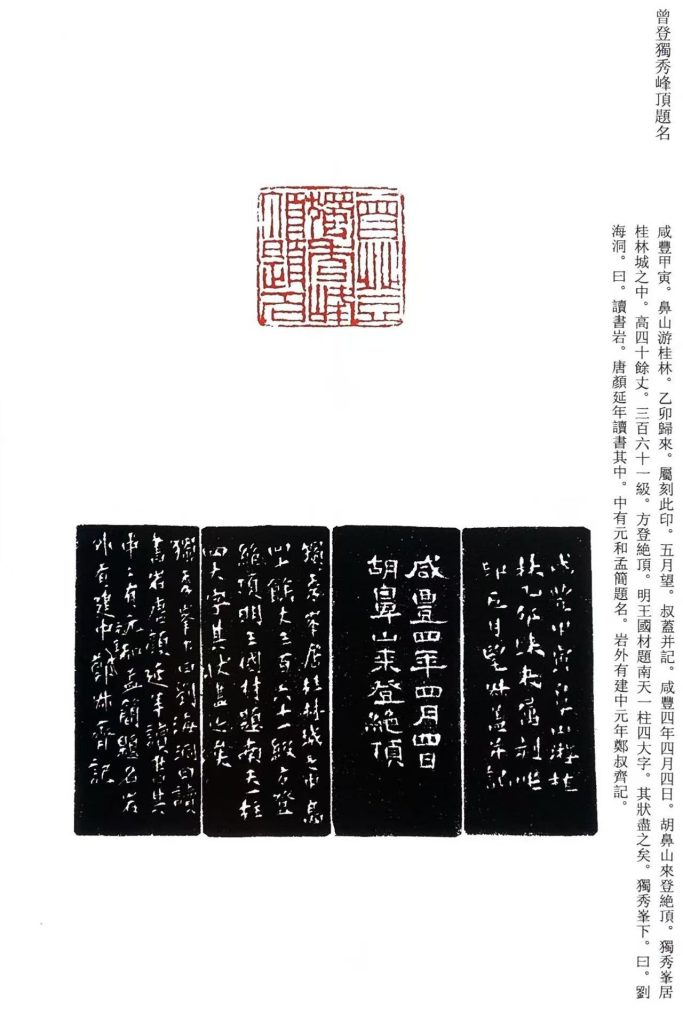 曾登獨秀峰頂題名
咸豐甲寅。鼻山游桂林。乙卯歸來。屬刻此印。五月望。叔蓋并記。咸豐四年四月四日。胡鼻山來登絶頂。獨秀峯居
桂林城之中。高四十餘丈。三百六十一級。方登絶頂。明王國材題南天一柱四大字。其狀盡之矣。獨秀峯下。曰。劉
海洞。曰。讀書岩。唐顏延年讀書其中。中有元和孟簡題名。岩外有建中元年鄭叔齊記。
曾登
獨秀峰
頂題名
咸豐甲寅鼻山游桂
林乙卯歸來屬刻此
印五月望叔蓋并記
咸豐四年四月四日
胡鼻山來登絶頂
獨秀峯居桂林城之中高
四十餘丈三百六十一級方登
絶頂明王國材題南天一柱
四大字其狀盡之矣
獨秀峯下曰劉海洞曰讀
書岩唐顏延年讀書其
中中有元和孟簡題名岩
外有建中元年鄭叔齊記